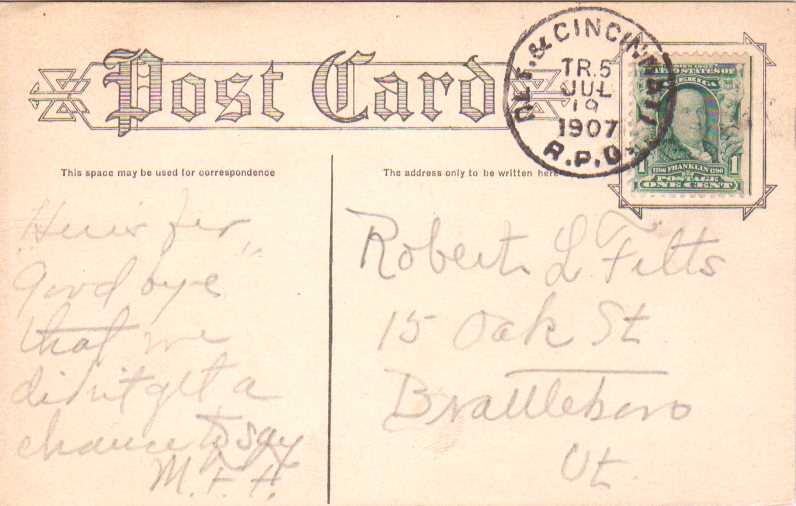 Post Card
& CINCINNATI
TR.5
JUL
19
1907
R.P.O.
UNITED STATES OF
AMERICA
1706 FRANKLIN 1790
1 POSTAGE 1
ONE CENT
This space may be used for correspondence
The address only to be written here
"Here's for
Good bye"
that we
didn't get a
chance to say
M. F. H.
Robert L Fitts
15 Oak St
Brattleboro
Vt.